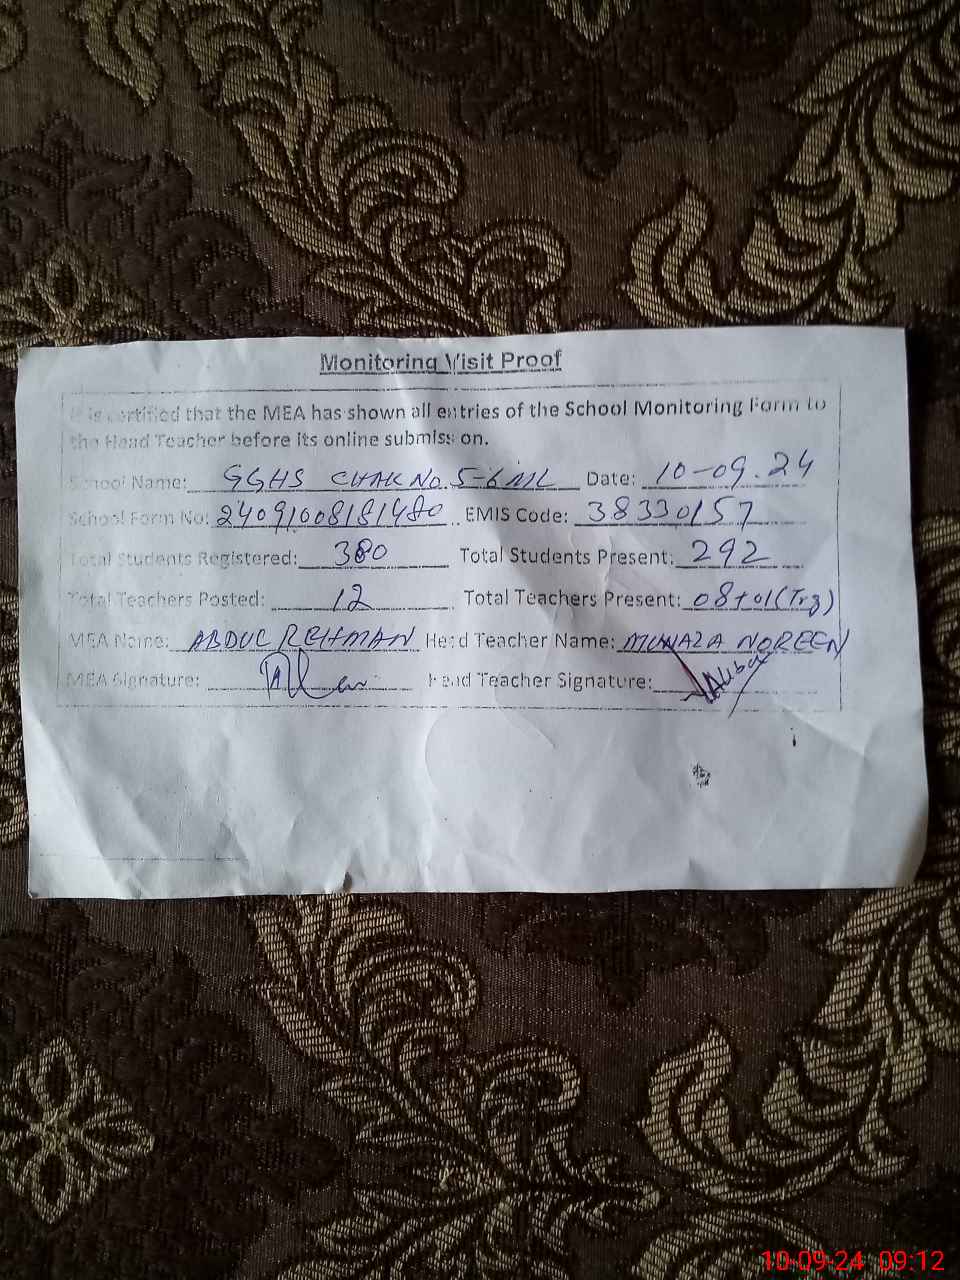 Monitoring Visit Proof
It is certified that the MEA has shown all entries of the School Monitoring Form to
the Head Teacher before its online submission.
School Name: GGHS CHAK No. 5-6 ML Date: 10-09-24
School Form No: 24091008181480 EMIS Code: 38330157
Total Students Registered: 380 Total Students Present: 292
Total Teachers Posted: 12 Total Teachers Present: 08+01(Trg)
MEA Name: ABDUL REHMAN Head Teacher Name: MUNAZA NOREEN
MEA Signature: Head Teacher Signature:
10-09-24 09:12